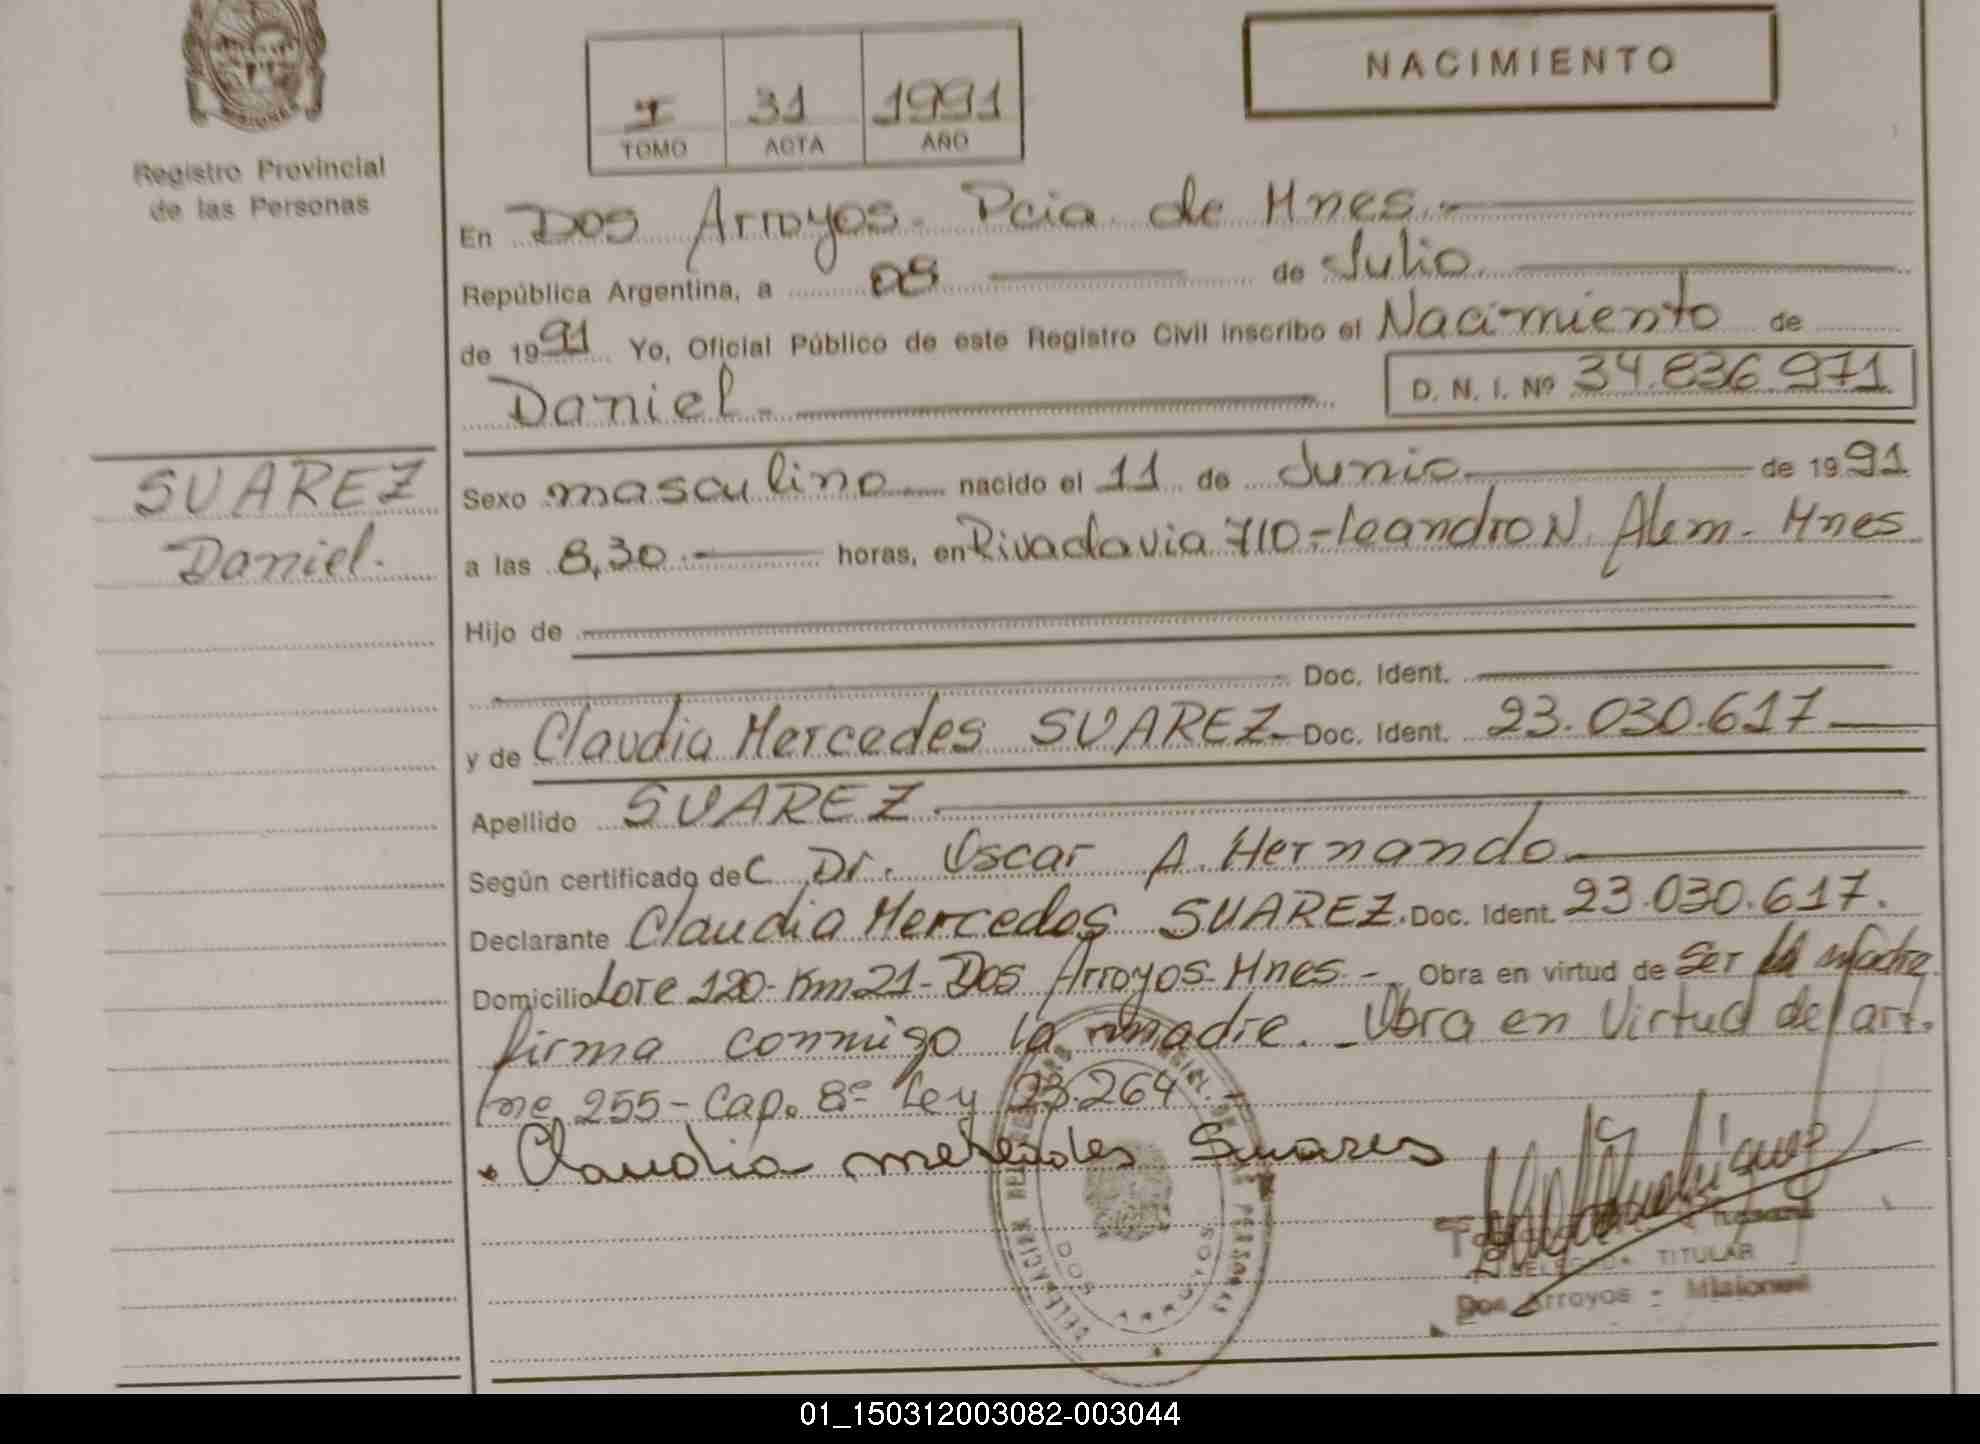 MISIONES
Registro Provincial
de las Personas
I 31 1991
TOMO ACTA AÑO
NACIMIENTO
En Dos Arroyos. Pcia de Mnes.-
República Argentina, a 08 de Julio
de 1991 Yo, Oficial Público de este Registro Civil inscribo el Nacimiento de
Daniel- D. N. I. Nº 34.836.971
SUAREZ
Daniel.
Sexo masculino nacido el 11 de Junio de 1991
a las 8,30.- horas, en Rivadavia 710-Leandro N. Alem- Mnes
Hijo de
Doc. Ident.
y de Claudia Mercedes SUAREZ- Doc. Ident. 23.030.617
Apellido SUAREZ.
Según certificado de C Dr. Oscar A. Hernando
Declarante Claudia Mercedes SUAREZ. Doc. Ident. 23.030.617.
Domicilio Lote 120- Km 21- Dos Arroyos- Mnes.- Obra en virtud de Ser la madre
firma conmigo la madre.- Obra en Virtud del art.
255- Cap. 8º Ley 23.264.-
Claudia Suares
DOS ARROYOS
TITULAR
Dos Arroyos - Misiones
01_150312003082-003044